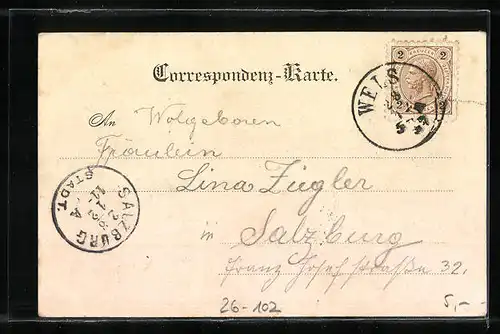 2 2
WELS
Correspondenz-Karte.
An Wolgeboren
Fräulein
Lina Ziegler
in Salzburg
Franz Josef straße 32.
SALZBURG
STADT.
26-102
5,-